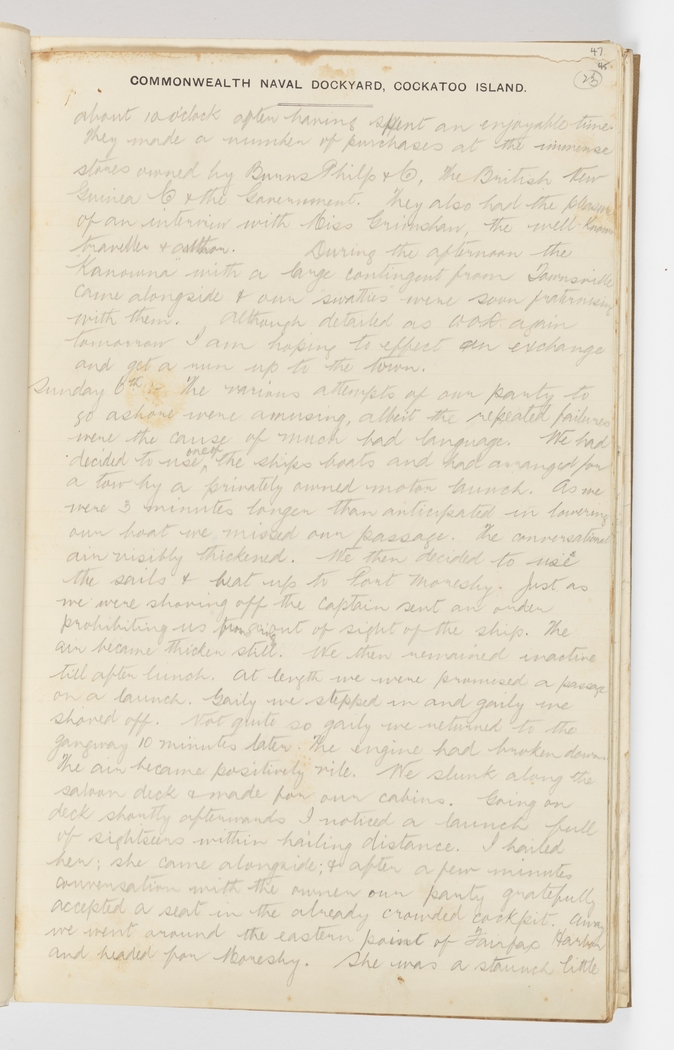 47
45
23
COMMONWEALTH NAVAL DOCKYARD, COCKATOO ISLAND.
about 10 o'clock after having spent an enjoyable time.
They made a number of purchases at the immense
stores owned by Burns Philp & C, The British New
Guinea C & the Government. They also had the pleasure
of an interview with Miss Grimshaw, the well-known
traveller & author. During the afternoon the
"Kanowna" with a large contingent from Townsville
came alongside & our "swatties" were soon fraternising
with them. Although detailed as OOD again
tomorrow I am hoping to effect an exchange
and get a run up to the town.
Sunday 6th The various attempts of our party to
go ashore were amusing, albeit the repeated failures
were the cause of much bad language. We had
decided to use one of the ships boats and had arranged for
a tow by a privately owned motor launch. As we
were 3 minutes longer than anticipated in lowering
our boat we missed our passage. The conversational
air visibly thickened. We then decided to use
the sails & beat up to Port Moresby. Just as
we were shoving off the captain sent an order
prohibiting us out of sight of the ship. The
air became thicker still. We then remained inactive
till after lunch. At length we were promised a passage
on a launch. Gaily we stepped in and gaily we
shoved off. Not quite so gaily we returned to the
gangway 10 minutes later. The engine had broken down.
The air became positively vile. We slunk along the
saloon deck & made for our cabins. Going on
deck shortly afterwards I noticed a launch full
of sightseers within hailing distance. I hailed
her; she came alongside; & after a few minutes
conversation with the owner our party gratefully
accepted a seat in the already crowded cockpit. Away
we went around the eastern point of Fairfax Harbor
and headed for Moresby. She was a staunch little